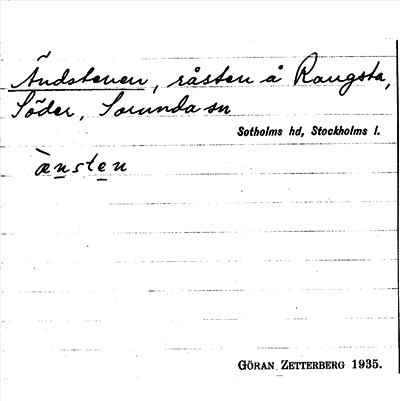 Ändstenen, råsten å Rangsta,
Söder, Sorunda sn
Sotholms hd, Stockholms l.
ǹnsten
GÖRAN ZETTERBERG 1935.